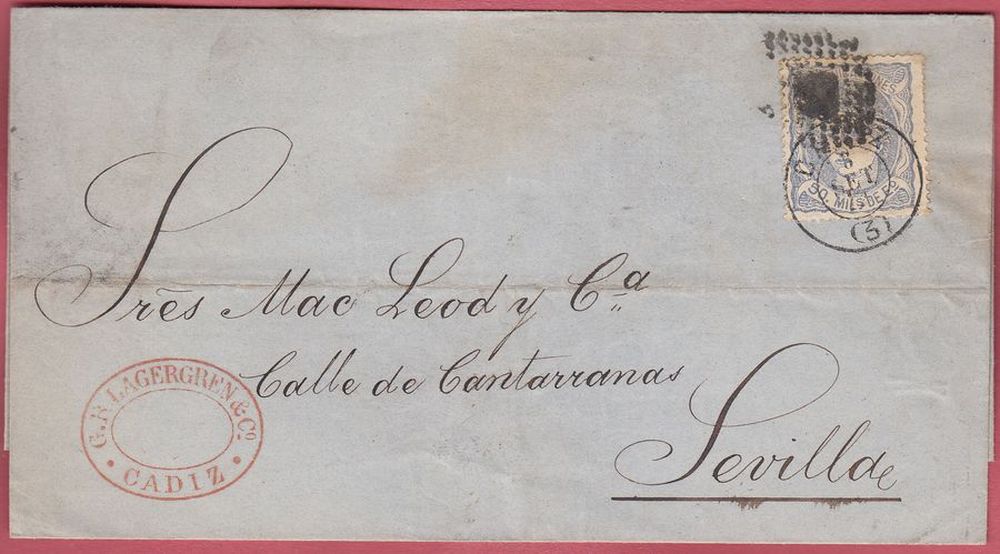 Srēs Mac Leod y Cª
Calle de Cantarranas
Sevilla
G. R. LAGERGREN & Cº.
CADIZ
50. MILS DE Eº
(3)